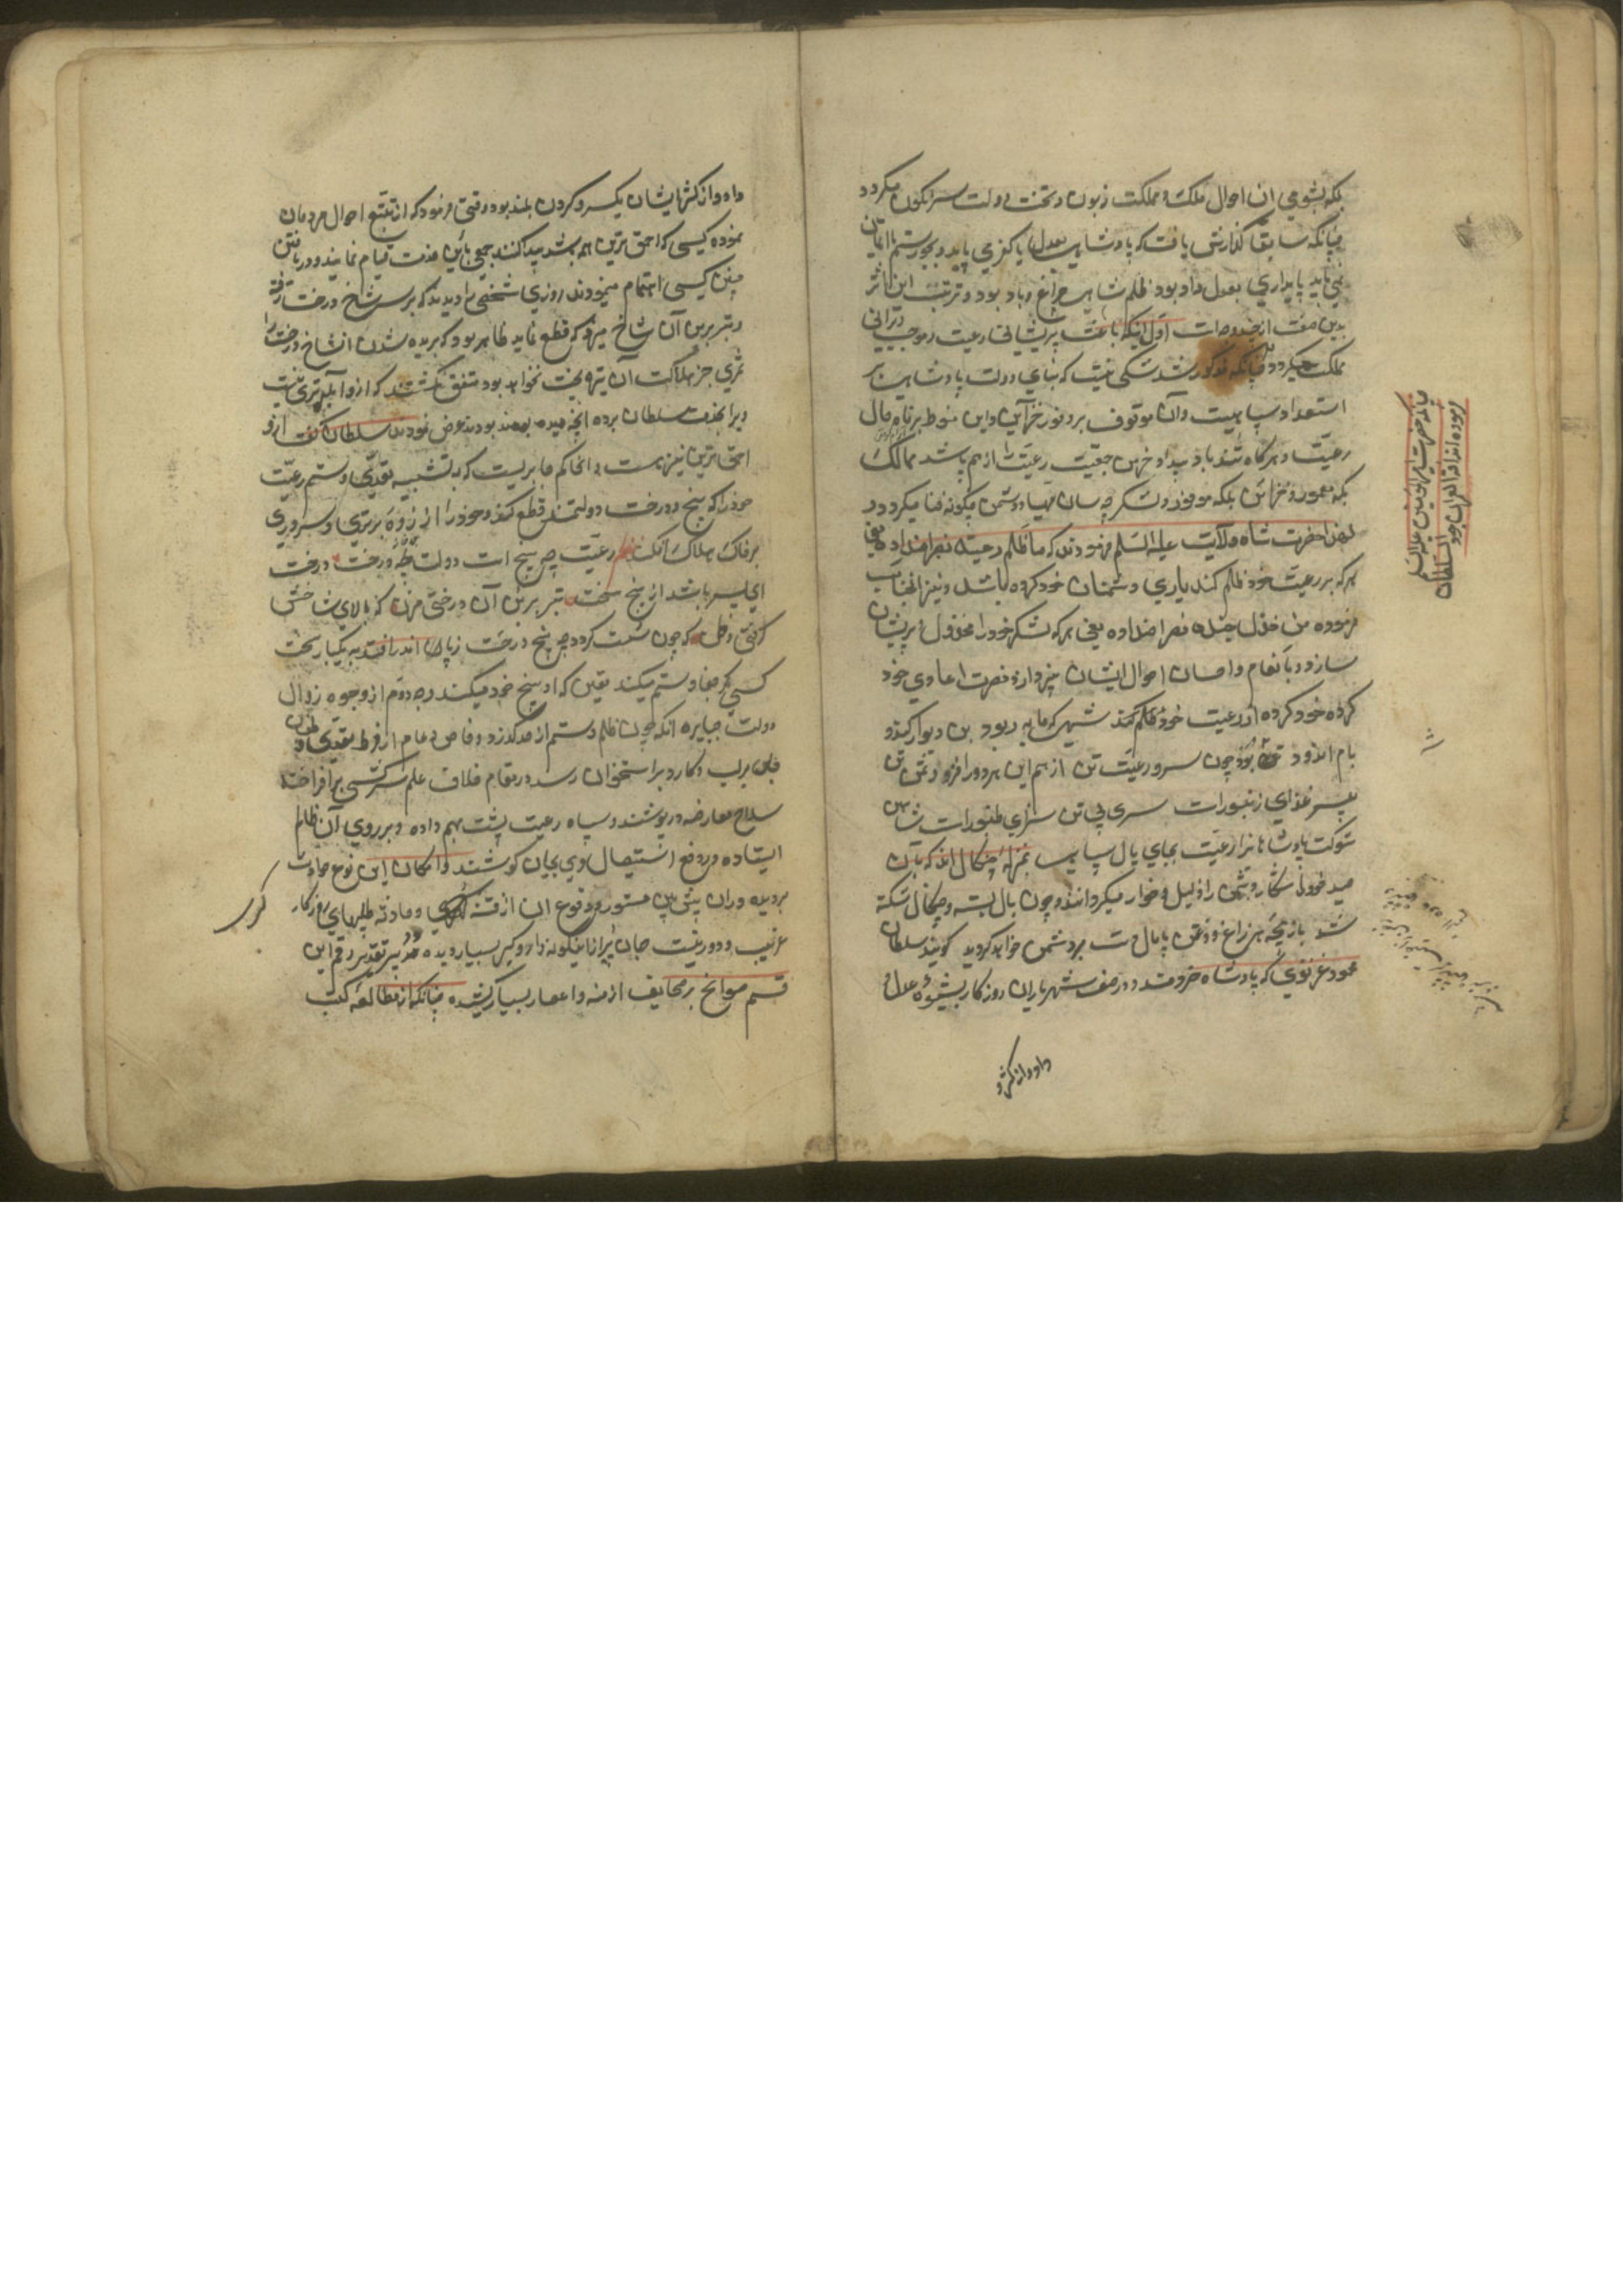 بلکه بشومی آن احوال ملک و مملکت زبون و تخت دولت سرنگون میگردد
چنانکه سابقا گذارش یافت که پادشاهی بعدل با کفر می پاید و بجور ستم با ایمان
نمی پاید پایداری بعدل و داد بود ظلم شاهی چراغ و باد بود و ترتب این اثر
بدین صفت از چند وجه است اول اینکه باعث پریشانی رعیت و موجب ویرانی
مملکت میگردد چنانکه مذکور شد شکی نیست که بنای دولت پادشاهی بر
استعداد سپاهیست و آن موقوف بر وفور خزاین و این منوط بر رفاه حال
رعیت و هرگاه تند باد بیداد خرمن جمعیت رعیت را از هم پاشد ممالک
بکه معمور و خزاین بلکه موفور و لشکر چه سان مهیا و دشمن چگونه فنا میگردد
لهذا حضرت شاه ولایت علیه السلم فرمودند که ما ظلم رعیته نصر اضداده یعنی
هر که بر رعیت خود ظلم کند یاری دشمنان خود کرده باشد و نیز آنجناب
فرموده من خذل جنده نصر اضداده یعنی هر که لشکر خود را مخذول و پریشان
سازد و بانعام و احسان احوال ایشان نپردازد نصرت اعادی خود
کرده خود کرده از رعیت خود ظلم کند شهی که مایه ربود بن دیوار کند و
بام اندود چون سر و رعیت تن از هم این هر دو را فزود ثمن تن
بی سر غذای زنبورات سری بی تن سزای طنبورات
شوکت پادشاهانرا رعیت بجای بال سپاهی بمنزله چنگال اند که بآن
صید خود را شکار و دشمن را ذلیل و خوار میگردانند و چون بال بسته و چنگال شکسته
شد بازیچه هر زاغ و زغن و پایمال دست برد دشمن خواهد گردید گویند سلطان
محمود غزنوی که پادشاه خردمند و در صف شهریاران روزگار بشیوه عدل و
داد و از کثر
چنانکه حضرت امیرالمؤمنین علیه السلم
فرموده اند آفة العمران جور
السلطان
داد و از کثر ایشان یکسر و گردن بلند بود وقتی فرمود که از تتبع احوال مردمان
نموده کسی که احمق ترین هم باشد پیدا کنند جمعی باین خدمت قیام نمایند و در یافتن
چنین کسی اهتمام مینمودند روزی شخصی را دیدند که بر سر شاخ درخت رفته
و تبر بر بن آن شاخ میزد که قطع نماید ظاهر بود که بریده شدن انشاخ درخت را
ثمری جز هلاکت آن تیره بخت نخواهد بود متفق گشتند که از و ابله تری نیست
ویرا بخدمت سلطان برده آنچه دیده بودند عرض نمودند سلطان گفت از و
احمق ترین نیز هست و آن حاکم جابریست که به تیشه تعدی و ستم رعیت
خود را که بیخ درخت دولتند قطع کند و خود را از ذروه برتری و سروری
بر خاک هلاک افکند رعیت چو بیخ است دولت درخت درخت
ای پسر باشد از بیخ سخت تبر بر بن آن درختی مزن که بالای شاخش
گرفتی وطن که چون سست گردد چو بیخ درخت ز پای اندر افتد به یکبار سخت
کسی کو جفا و ستم میکند یقین که او بیخ خود میکند وجه دوم از وجوه زوال
دولت جبابره انکه چون ظلم و ستم از حد گذرد و خاص و عام از فرط تعدی
جان بر لب و کارد بر استخوان رسد در مقام خلاف علم سرکشی برافراخته
سلاح معارضه در پوشند و سپاه رعیت پشت بهم داده و بر روی آن ظالم
ایستاده در دفع استیصال وی بجان کوشند و امکان این نوع حوادث
بر دیده وران پیش بین مستور و وقوع این از فتنه و حادثه طلبیهای روزگار
غریب و دور نیست جهان پیر ازینگونه دار و گیر بسیار دیده و دبیر تقدیر رقم این
قسم سوانح بر صحایف ازمنه و اعصار بسیار کشیده چنانکه از مطالعه کتب